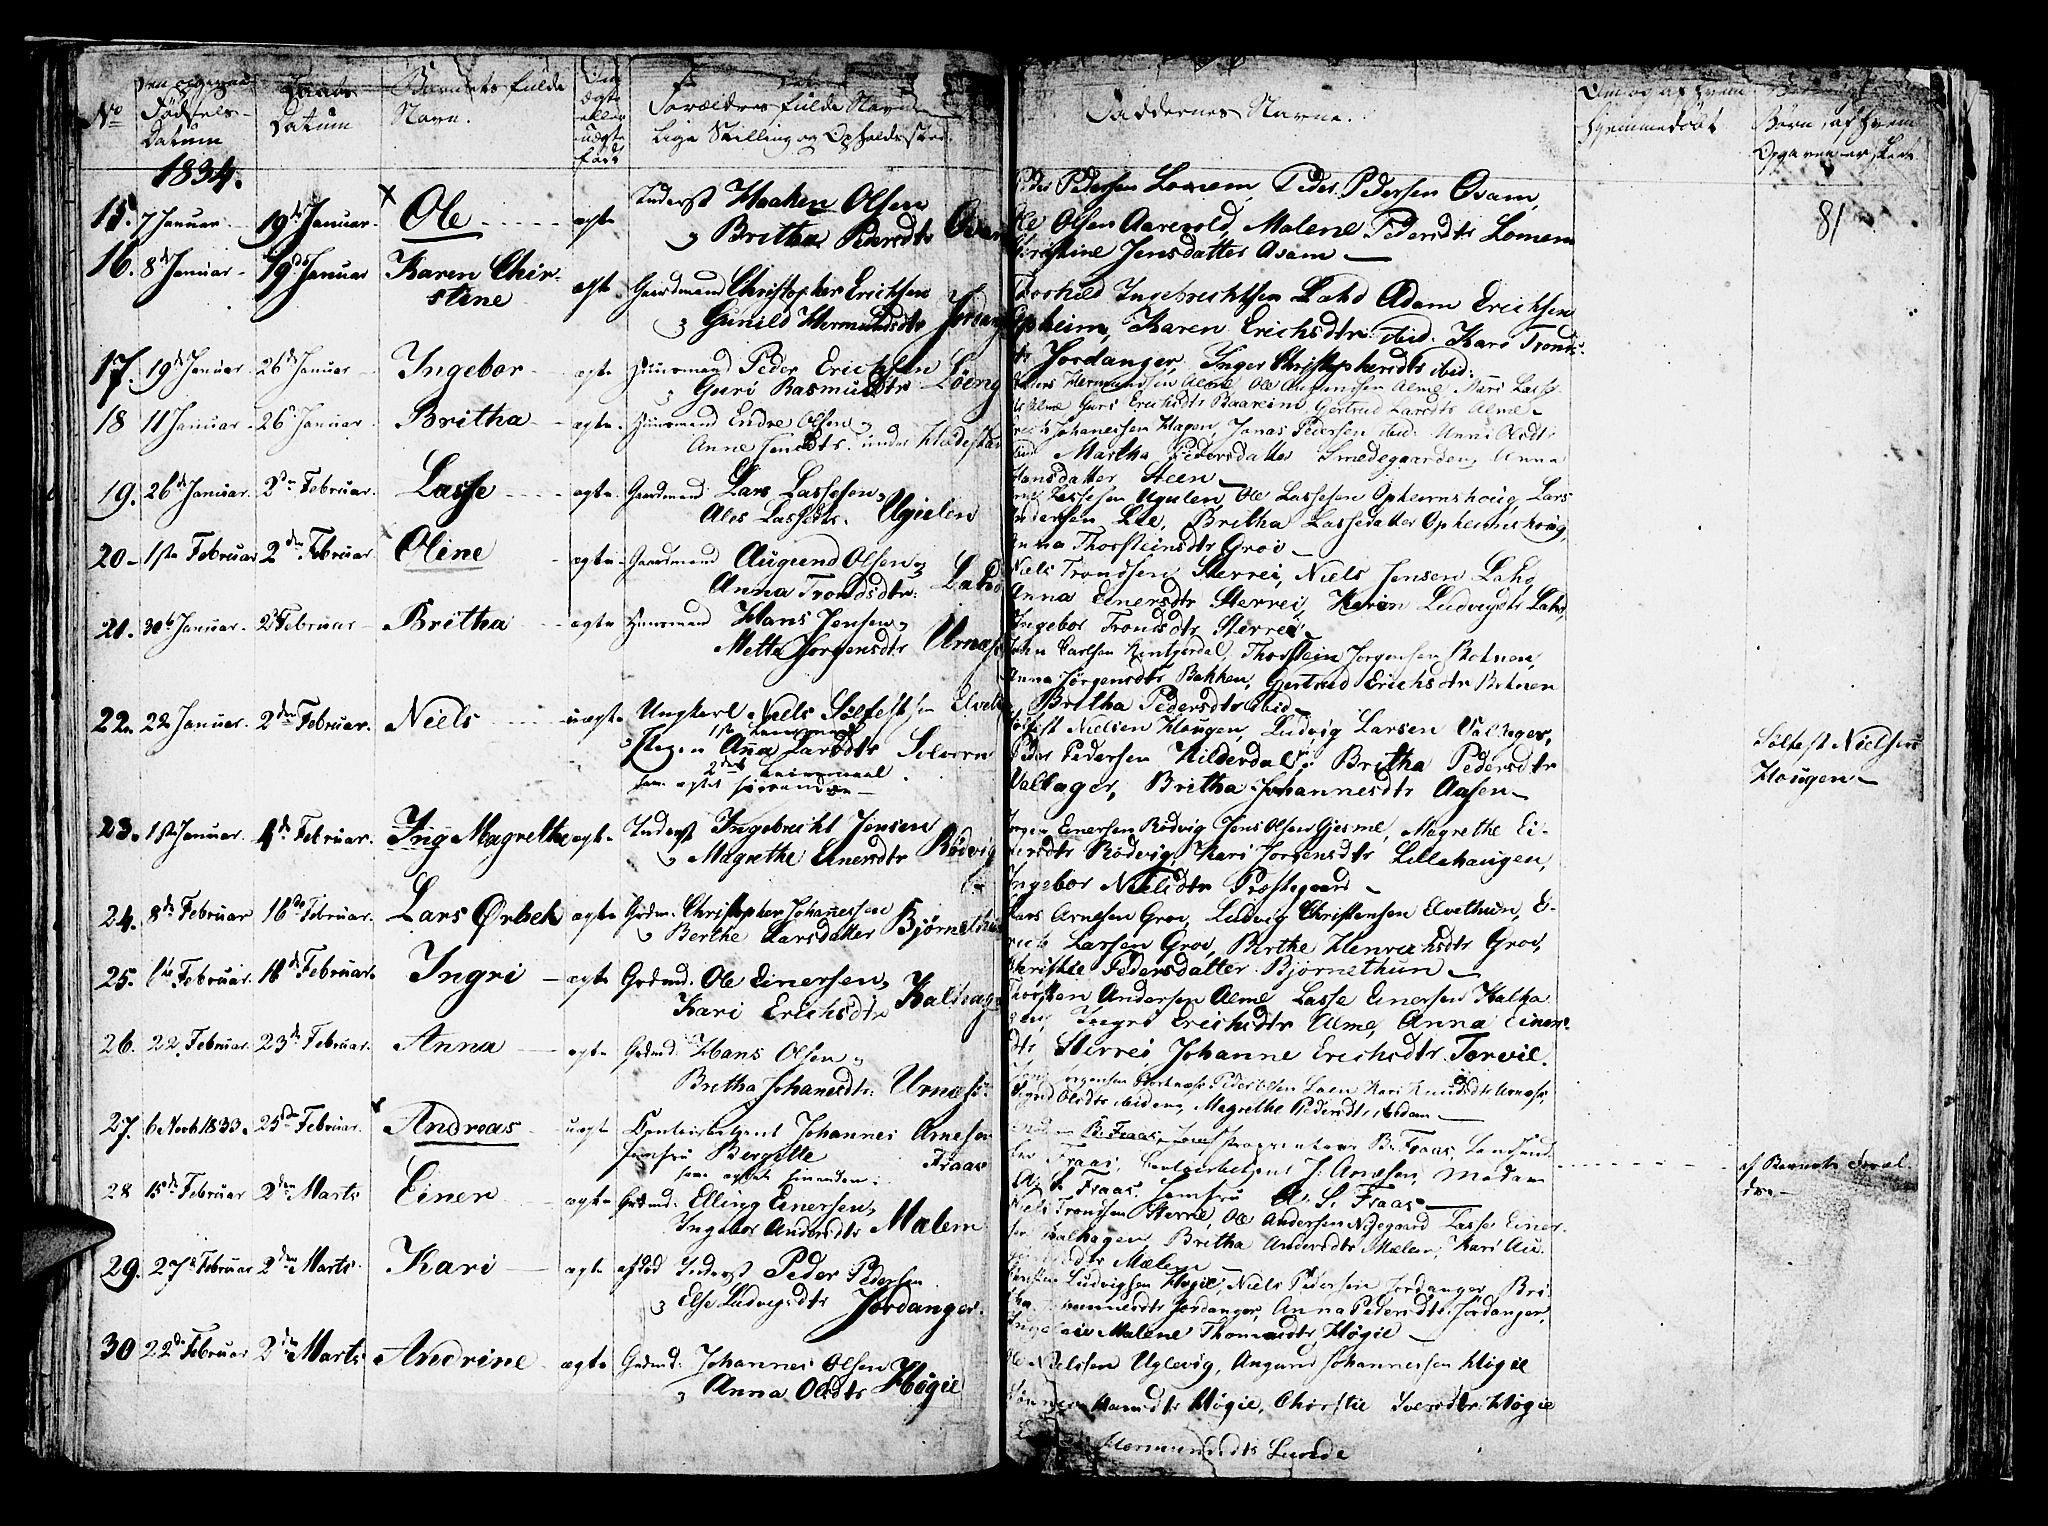 No
Den opgivne Fødsels-
Datum
Daabs
Datum
Barnets fulde
Navn.
Om
ægte
eller
uægte
født
Forældres fulde Navn
Lige Stilling og Opholdssted.
Faddernes Navne.
Om og af hvem
hjemmedøbt
Børn, af hvem
Opgaven er skeet.
1834.
81
15. 7 Januar 19de Januar Ole ægte Inderst Haaken Olsen
Britha Pedersdtr Osam
Peder Pedersen Lomem, Peder Pedersen Osam,
Ole Olsen Aarevold, Malene Pedersdtr Lomem
Christine Jensdatter Osam
16. 8de Januar 19de Januar Karen Chir-
stine ægte Gaardmand Christopher Erichsen
Gunild Hermundsdtr Jordanger
Thorkild Ingebrechtsen Lahd Adam Erichsen
Opheim, Karen Erichsdtr ibid. Kari Tronds-
dtr Jordanger, Inger Christophersdtr ibid:
17. 19de Januar 26de Januar Ingebor ægte Huusmand Peder Erichsen
Guri Rasmusdtr Löeng
Hermundsen Alme, Ole Alme, Mari Lasse-
Alme Guri Erichsdtr Baareim, Gertrud Larsdtr Alme
18 11 Januar 26 Januar Britha ægte Huusmand Endre Olsen
Anne Jensdtr. under
Johannessen Hagen, Jonas Pedersen ibid: Anna Olsdtr
ibid Martha Pedersdatter Smedegaarden, Anna
Hansdatter Steen
19. 26de Januar 2den Februar Lasse ægte Gaardmand Lars Lassesen
Ales Lassedtr. Ugulen
Lassesen Ugulen, Ole Lassesen Opheimshoug, Lars
Andersen Lie, Britha Lassedatter Opheimshoug,
Anna Thorsteinsdtr Groi
20 1ste Februar 2den Februar Oline ægte Gaardmand Augund Olsen
Anna Trondsdtr: Lahd
Niels Trondsen Sterrei, Niels Jensen Lahd,
Anna Einersdtr Sterrei, Karen Ludvigsdtr Lahd,
Ingebor Trondsdtr Sterrei
21. 30te Januar 2den Februar Britha ægte Huusmand Hans Jensen
Mette Jørgensdtr Urnæs
John Carlsen Kintzerdal, Thorstein Jørgensen Botnen,
Anna Jørgensdtr Bakken, Gertrud Erichsdtr Botnen
Britha Pedersdtr ibid
22. 22 Januar. 2den Februar. Niels uægte Ungkarl Niels Sølfestsen
1ste Leiermaal
Pigen Ana Larsdtr Solvorn
2det Leiermaal
som ægter hinanden
Sølfest Nielsen Hougen, Ludvig Larsen Valhager,
Peder Pedersen Kilderdal, Britha Pedersdtr
Valhager, Britha Johannesdtr Aasen
Sølfest Nielsen
Hougen
23. 1ste Januar. 4de Februar. Ing Magrethe ægte Inderst Ingebrecht Jensen
Magrethe Einersdtr Rödvig
Jørgen Einersen Rödvig Jens Olsen Gjesme, Magrethe Ei-
nersdtr Rödvig, Kari Jørgensdtr Lillehaugen,
Ingebor Nielsdtr Præstegaard
24. 8de Februar 16de Februar. Lars Ørbek ægte Grdm: Christopher Johanessen
Berthe Larsdatter Bjørnethun
Lars Arnesen Groi, Ludvig Christensen Elvethun, E-
rich Larsen Groi, Berthe Henrichsdtr Groi,
Christie Pedersdatter Bjørnethun
25. Februar. 16de Februar. Ingri ægte Grdmd. Ole Einersen,
Kari Erichsdtr Kalhagen
Thorsten Andersen Alme Lasse Einersen Kalha-
gen, Ingri Erichsdtr Alme, Anna Einers-
dtr Sterrei, Johanne Erichsdtr. Torvil.
26. 22 Februar. 23de Februar. Anna ægte Grdmd: Hans Olsen
Britha Johannesdtr: Urnæs:
Jørgensen Peder Olsen Kari Knudsdtr Urnæs,
Sigrid Olsdtr ibidem, Magrethe Pedersdtr
27. 6 Novb 1833. 25de Februar. Andreas uægt Contoirbetjent Johannes Arnesen
Jomfru Bergitte Fraas
som ægter hinanden.
B. Fraas, B. Fraas,
Fraas, Contoirbetjent J. Arnesen, Madam
Fraas. Jomfru A. S. Fraas
af Barnets Foræl-
dre
28 15de Februar 2den Marts Einer ægte Grdmd: Elling Einersen,
Ingebor Andersdtr Malem
Niels Trondsen Sterrei, Ole Andersen Nedegaard Lasse Einer-
sen Kalhagen, Britha Andersdtr Mælem, Kari Au-
Mælem
29. 27de Februar 2den Marts. Kari ægte afdød Inderst Peder Pedersen
Else Ludvigsdtr Jordanger.
Ludvigsen Høgie, Niels Pedersen Jordanger, Bri-
tha Jordanger, Anna Pedersdtr Jordanger,
Malene Thomasdtr Høgie
30 22de Februar 2den Marts Andrine ægte Grdmd: Johannes Olsen
Anna Olsdtr Høgie
Ole Nielsen Uglevig, Augund Johannessen Høgie
Hansdtr Høgie, Christie Iversdtr: Høgie
Hermundsdtr Lunde